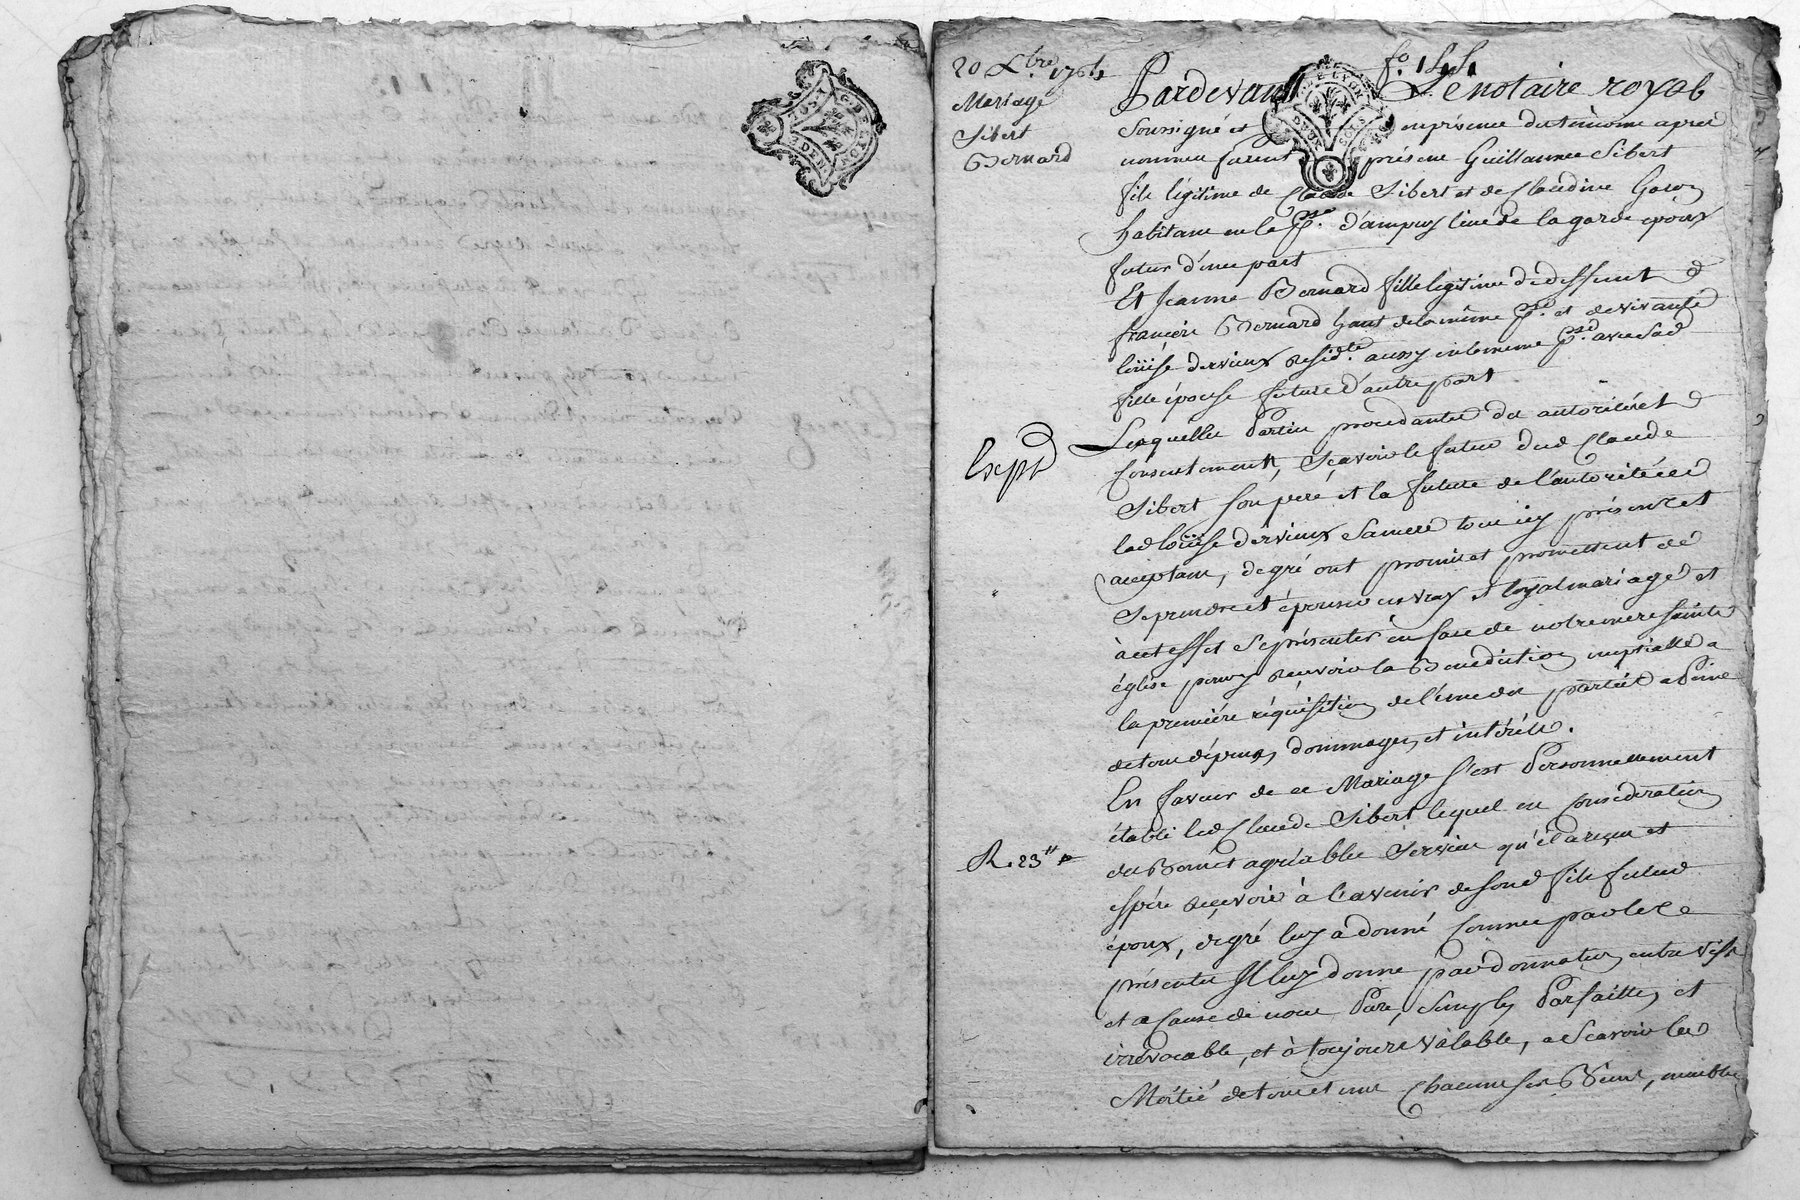 20 xbre 1764
Mariage
Sibert
Bernard
fo. 144
Pardevant Le notaire royal
Soussigné et en présence des temoins apres
nommés furent présens Guillaume Sibert
fils légitime de Claude Sibert et de Claudine
habitans en la psse. d'ampuy lieu de la garde époux
futur d'une part
Et Jeanne Bernard fille legitime de deffunt
françois Bernard hant de la même psse. et de vivante
loüise dervieux residte. aussy en la meme psse. avec sad
fille épouse future d'autre part
Expd
Lesquelles Parties procedantes des autorités et
Consentement, Sçavoir le futur dud Claude
Sibert son pere et la future de l'autorité de
lad loüise dervieux sa mere tous icy présens et
acceptans, de gré ont promis et promettent de
se prendre et épouser en vray et loyal mariage et
à cet effet se présenter en face de notre mere sainte
église pour y recevoir la Benediction nuptialle a
la premiére réquisition de l'une des parties a Peine
de tous dépens, dommages, et intérêts.
En faveur de ce Mariage s'est Personnellement
établi led Claude Sibert lequel en Consideration
R. 23
des Bons et agréables Services qu'il a reçus et
espére reçevoir à l'avenir de son d fils futur
époux, de gré luy a donné Comme par les
présentes Il luy donne par donnation entre vifs
et a Cause de noces Pure, Simple, Parfaitte, et
irrévocable, et à toujours valable, a Scavoir la
Moitié de tous et uns Chacuns ses Biens, meubles